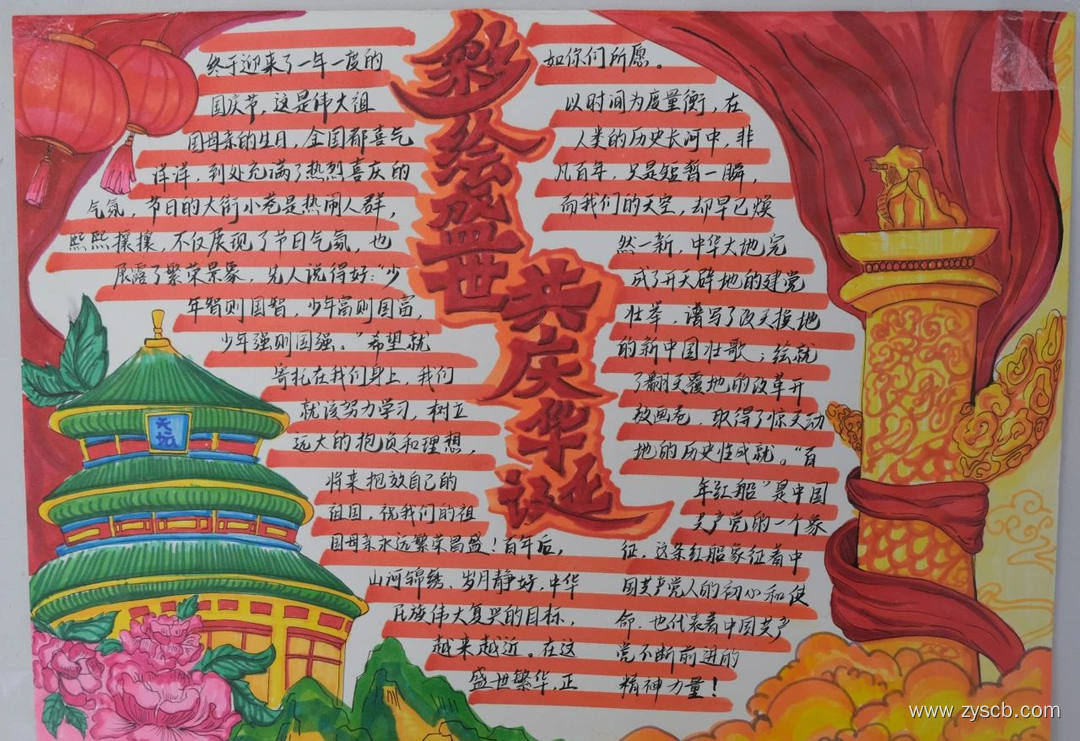 彩绘盛世
共庆华诞
终于迎来了一年一度的
国庆节，这是伟大祖
国母亲的生日，全国都喜气
洋洋，到处充满了热烈喜庆的
气氛，节日的大街小巷是热闹人群，
熙熙攘攘，不仅展现了节日气氛，也
展露了繁荣景象，先人说得好：“少
年智则国智，少年富则国富，
少年强则国强。”希望就
寄托在我们身上，我们
就该努力学习，树立
远大的抱负和理想，
将来把放自己的
祖国，祝我们的祖
国母亲永远繁荣昌盛！百年后，
山河锦绣、岁月静好，中华
民族伟大复兴的目标，
越来越近。在这
盛世繁华，正
如你们所愿。
以时间为度量衡，在
人类的历史长河中，非
凡百年，只是短暂一瞬，
而我们的天空，却早已焕
然一新，中华大地完
成了开天辟地的建党
壮举，谱写了改天换地
的新中国壮歌；绘就
了翻天覆地的改革开
放画卷，取得了惊天动
地的历史性成就。“百
年红船”是中国
共产党的一个象
征，这条红船象征着中
国共产党人的初心和使
命，也代表着中国共产
党不断前进的
精神力量！
天坛
www.zyscb.com